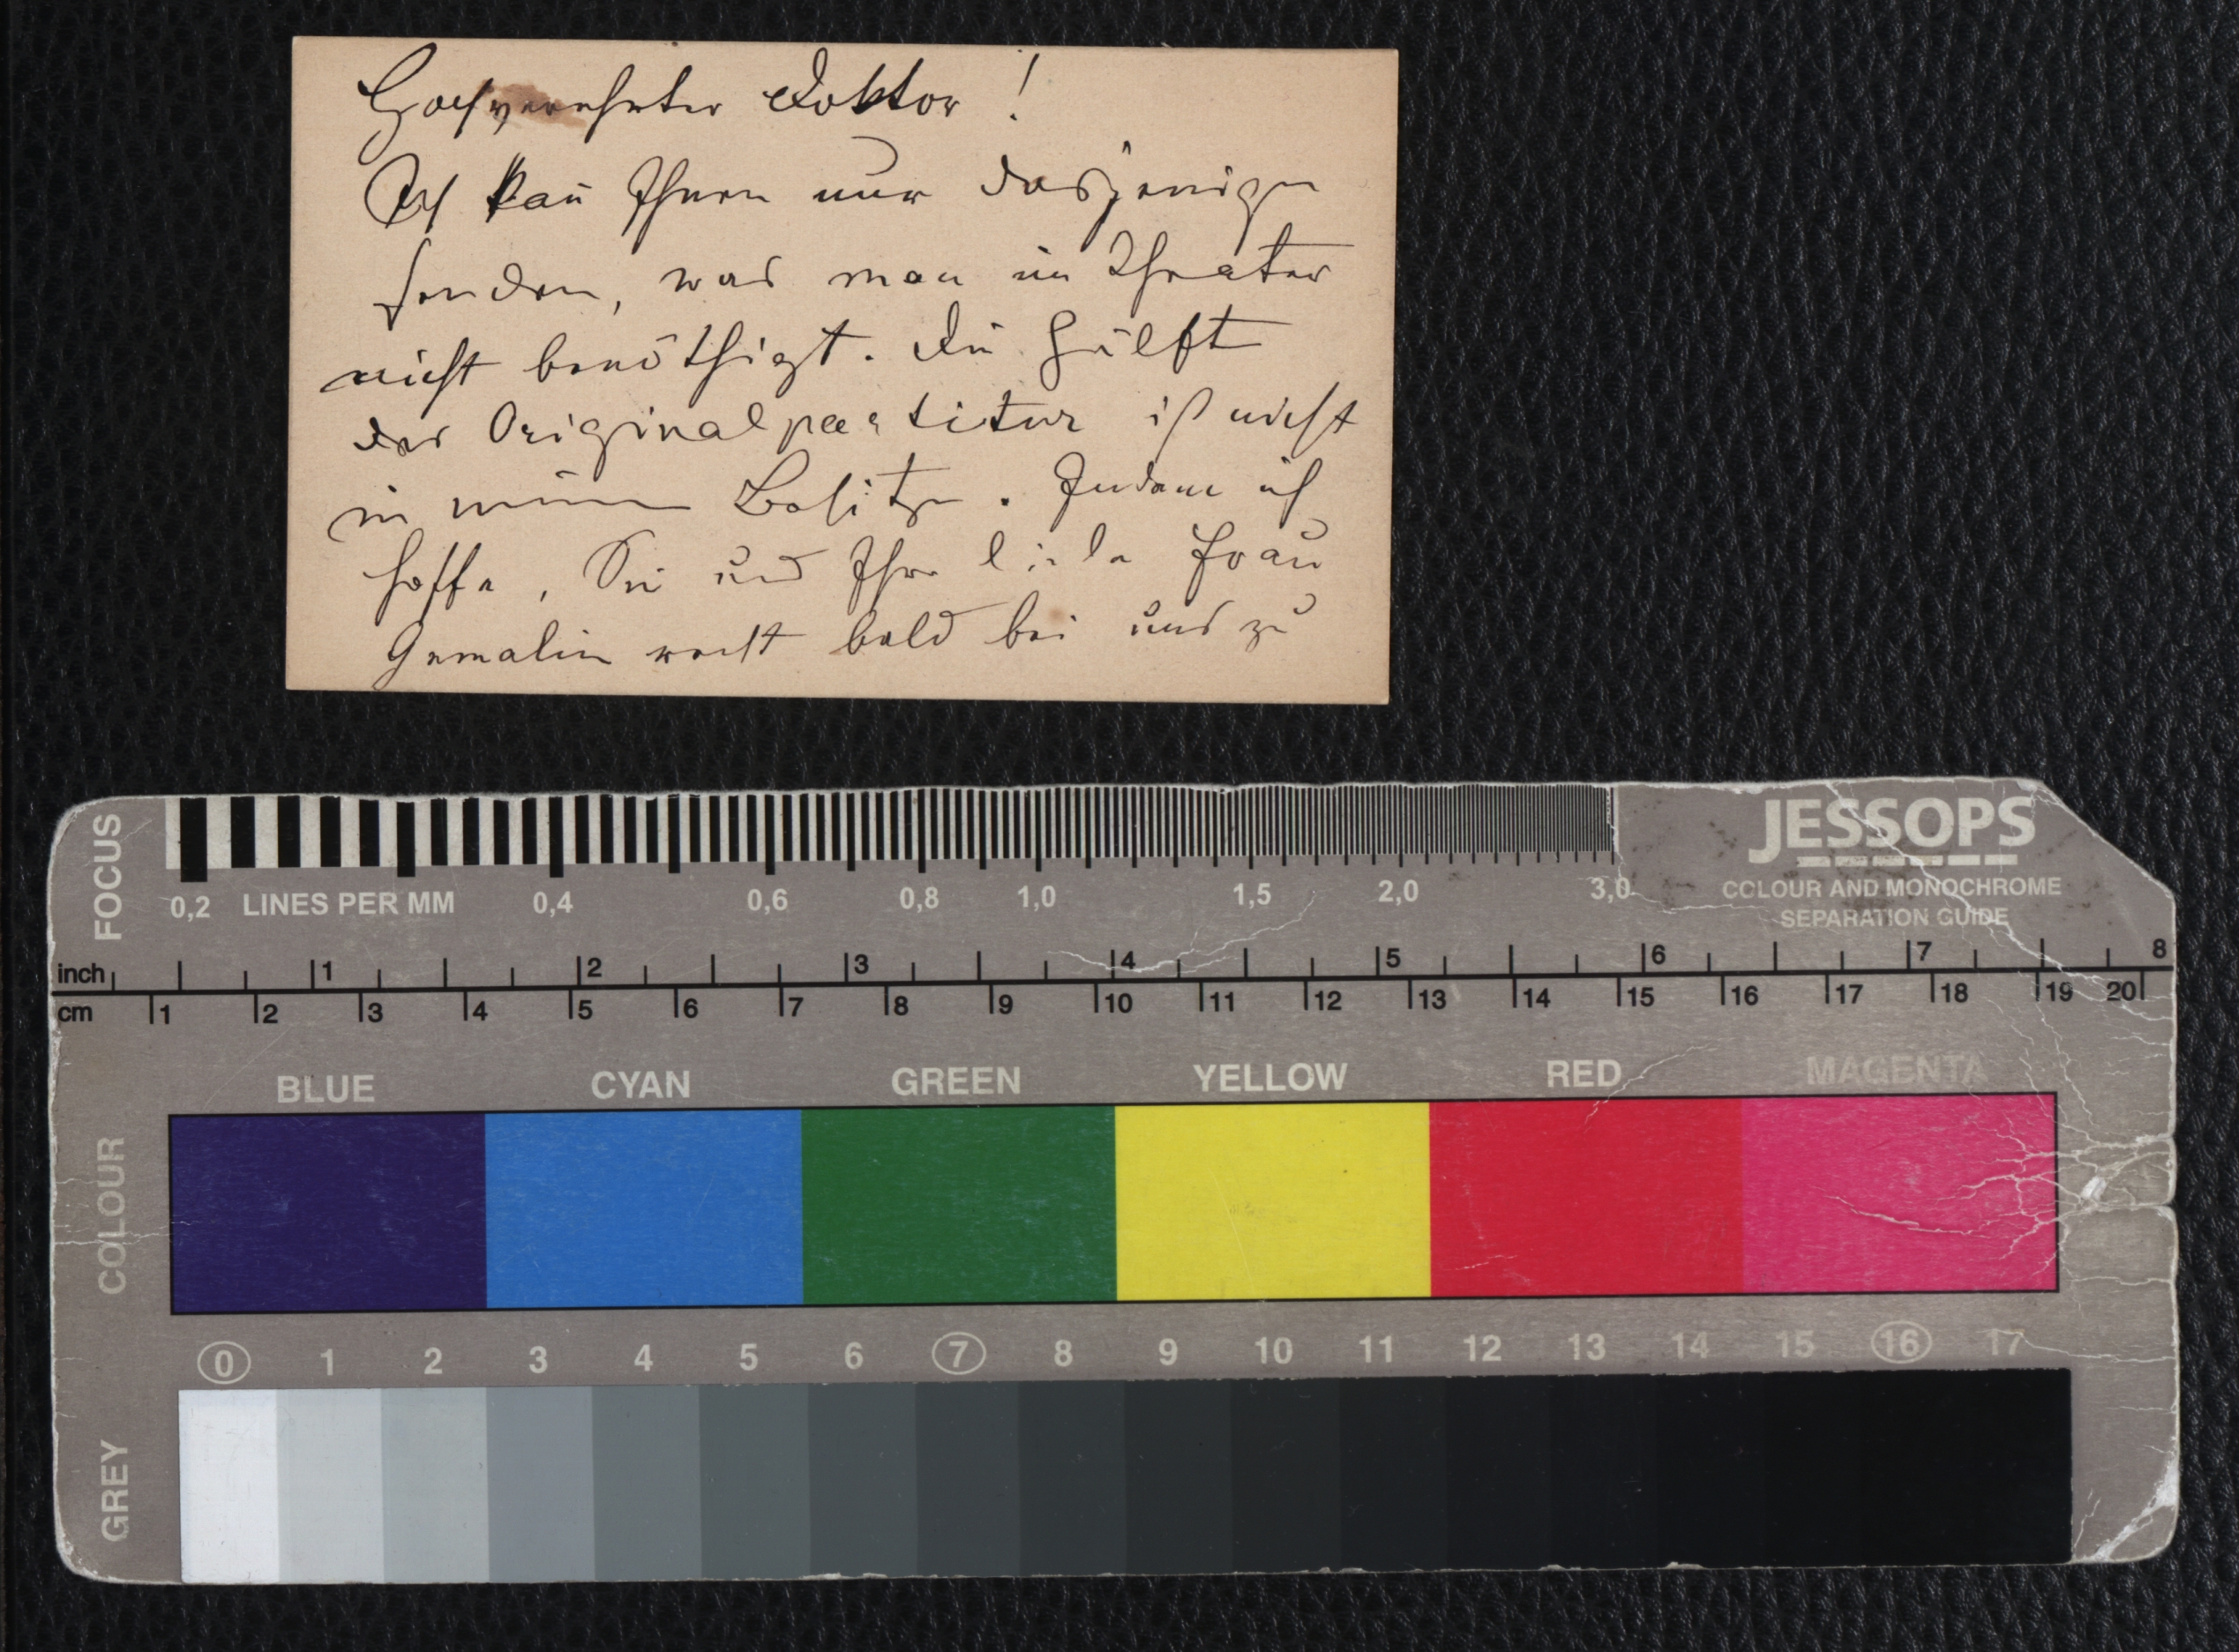 Hochverehrter Doktor!
Ich kan̄ Ihnen nur dasjenige
senden, was man im Theater
nicht benöthigt. Die Hälfte
der Originalpartitur ist nicht
in meinem Besitze. Indem ich
hoffe, Sie und Ihre liebe Frau
Gemalin recht bald bei uns zu
FOCUS
0,2 LINES PER MM 0,4 0,6 0,8 1,0 1,5 2,0 3,0
JESSOPS
COLOUR AND MONOCHROME
SEPARATION GUIDE
inch 1 2 3 4 5 6 7 8
cm 1 2 3 4 5 6 7 8 9 10 11 12 13 14 15 16 17 18 19 20
BLUE CYAN GREEN YELLOW RED MAGENTA
COLOUR
0 1 2 3 4 5 6 7 8 9 10 11 12 13 14 15 16 17
GREY